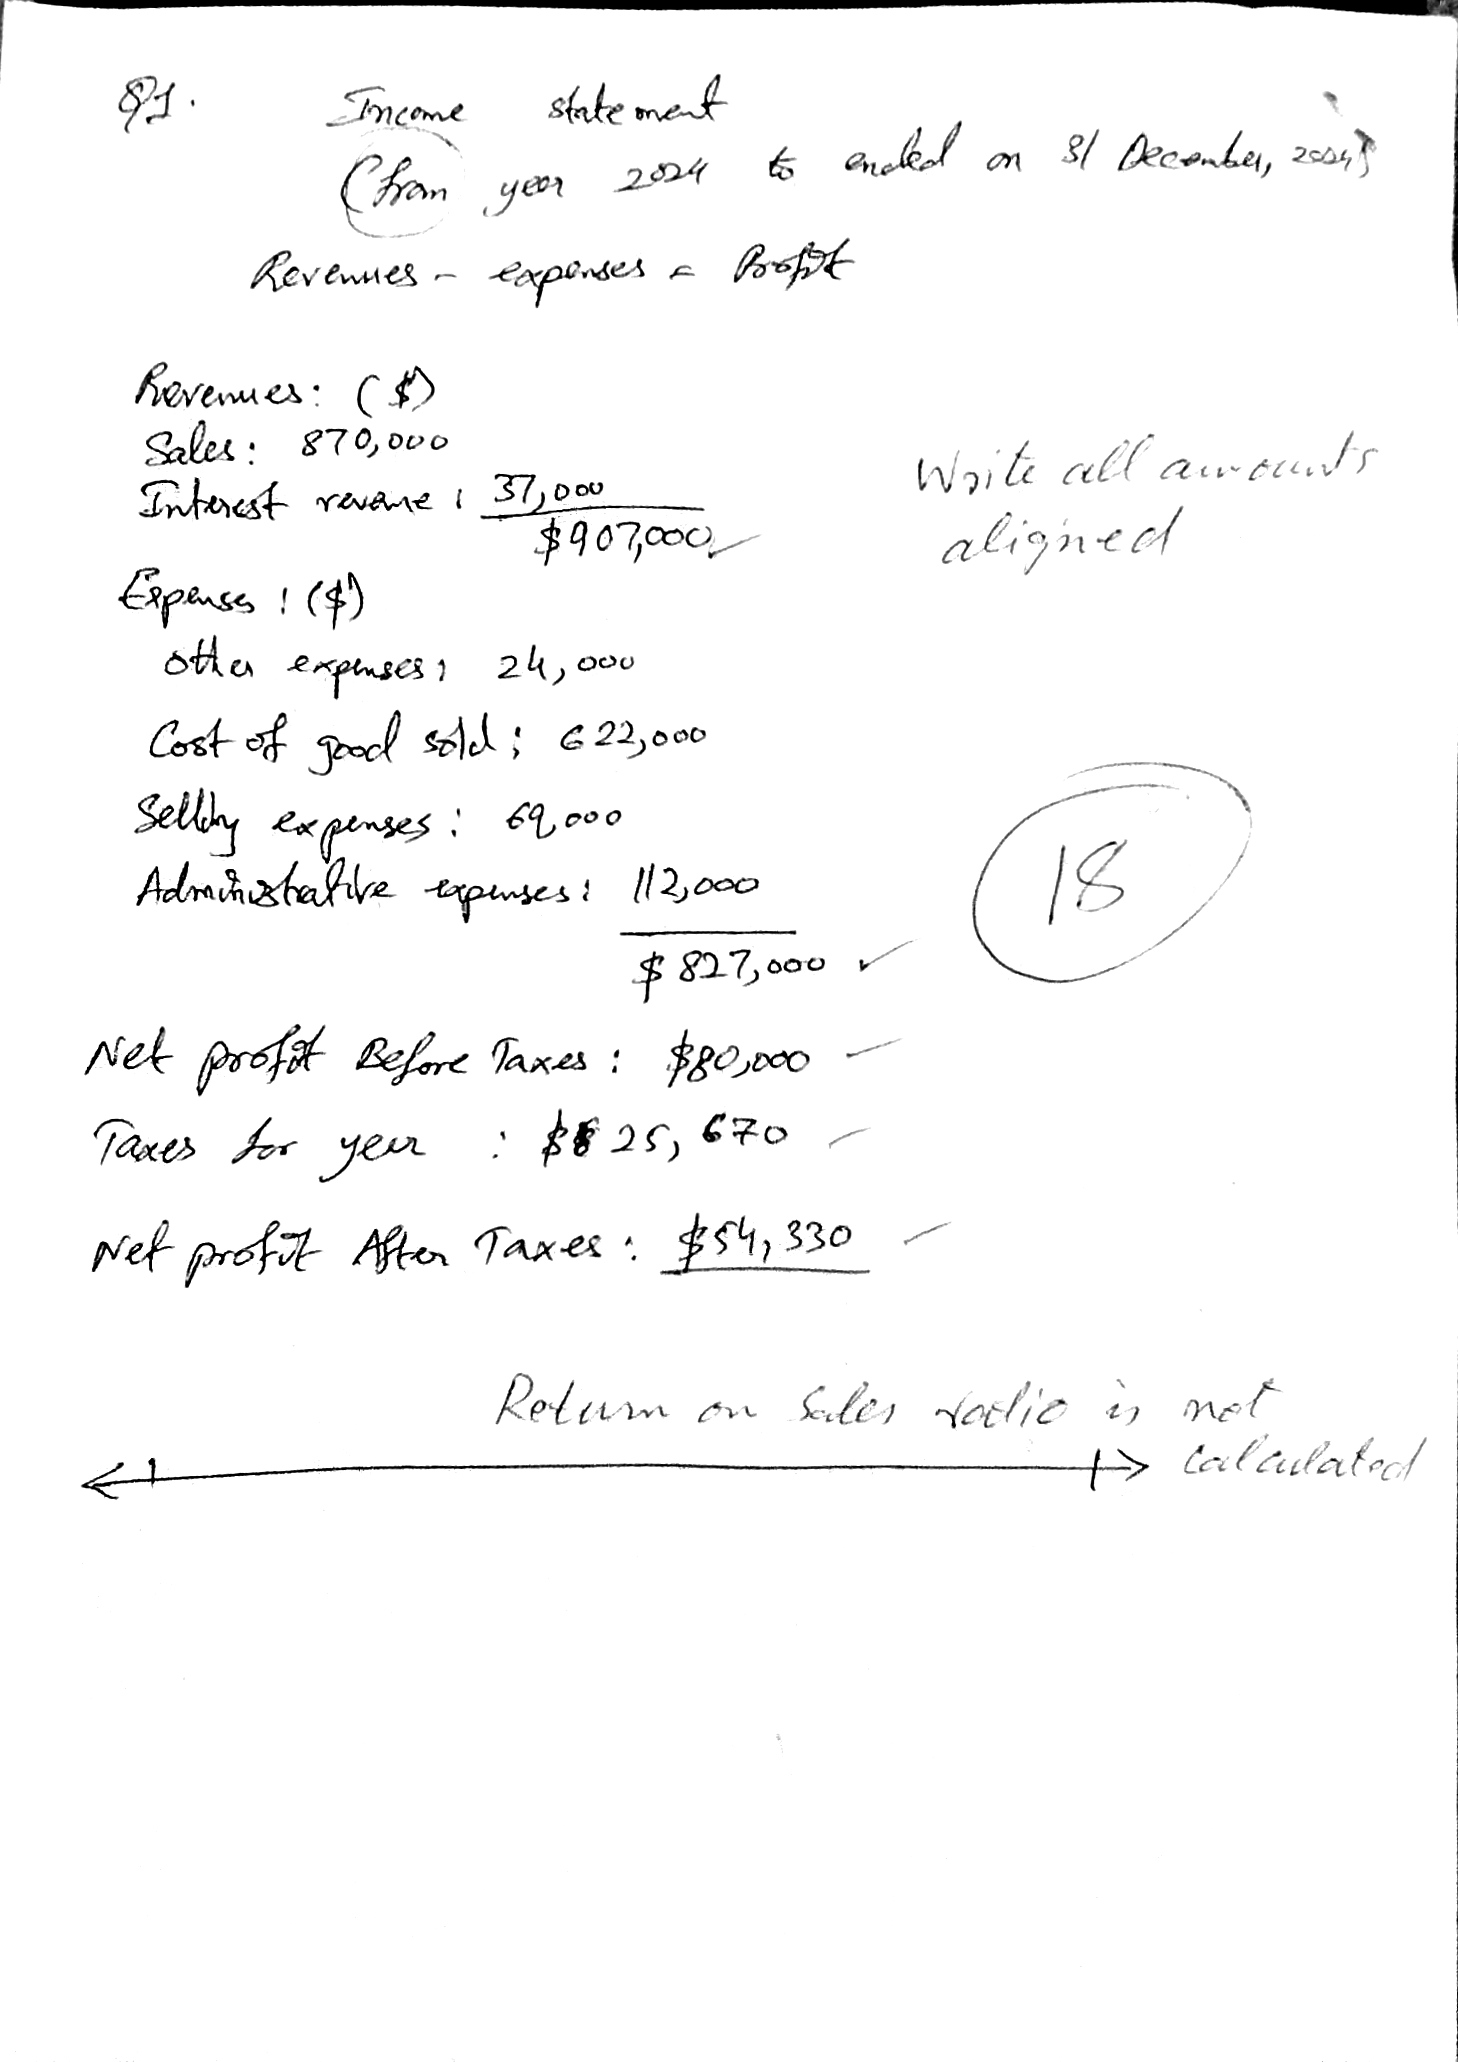 Q1. Income statement
(from year 2024 to ended on 31 December, 2024)
Revenues - expenses = Profit
Revenues: ($)
Sales: 870,000
Write all amounts
Interest revenue : 37,000
aligned
$907,000
Expenses : ($)
Other expenses : 24,000
Cost of good sold : 622,000
Selling expenses : 69,000
18
Administrative expenses : 112,000
$827,000 ✓
Net profit Before Taxes : $80,000
Taxes for year : $25,670
Net profit After Taxes : $54,330
Return on Sales ratio is not
calculated